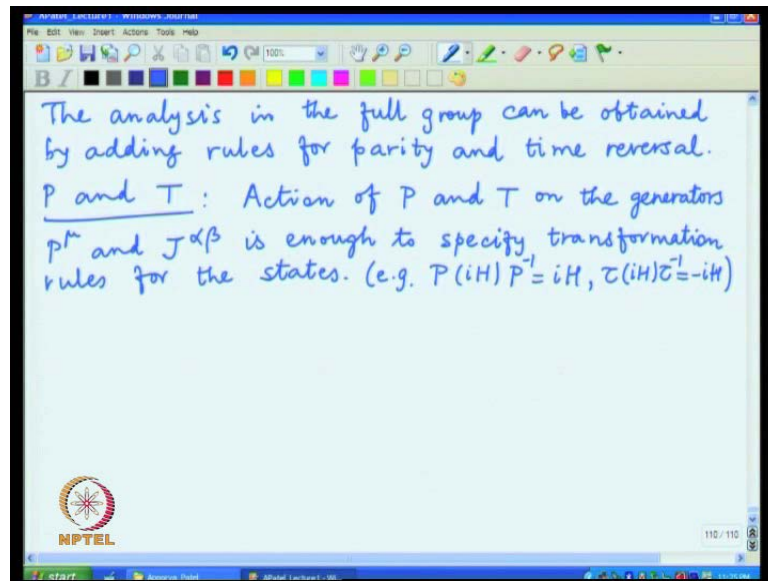 APatel_Lecture1 - Windows Journal
File Edit View Insert Actions Tools Help
100%
B I
The analysis in the full group can be obtained
by adding rules for parity and time reversal.
P and T : Action of P and T on the generators
P^μ and J^αβ is enough to specify transformation
rules for the states. (e.g. P(iH)P⁻¹ = iH, τ(iH)τ⁻¹ = -iH)
NPTEL
110 / 110
start Apoorva Patel APatel_Lecture1 - Wi... 11:25 PM